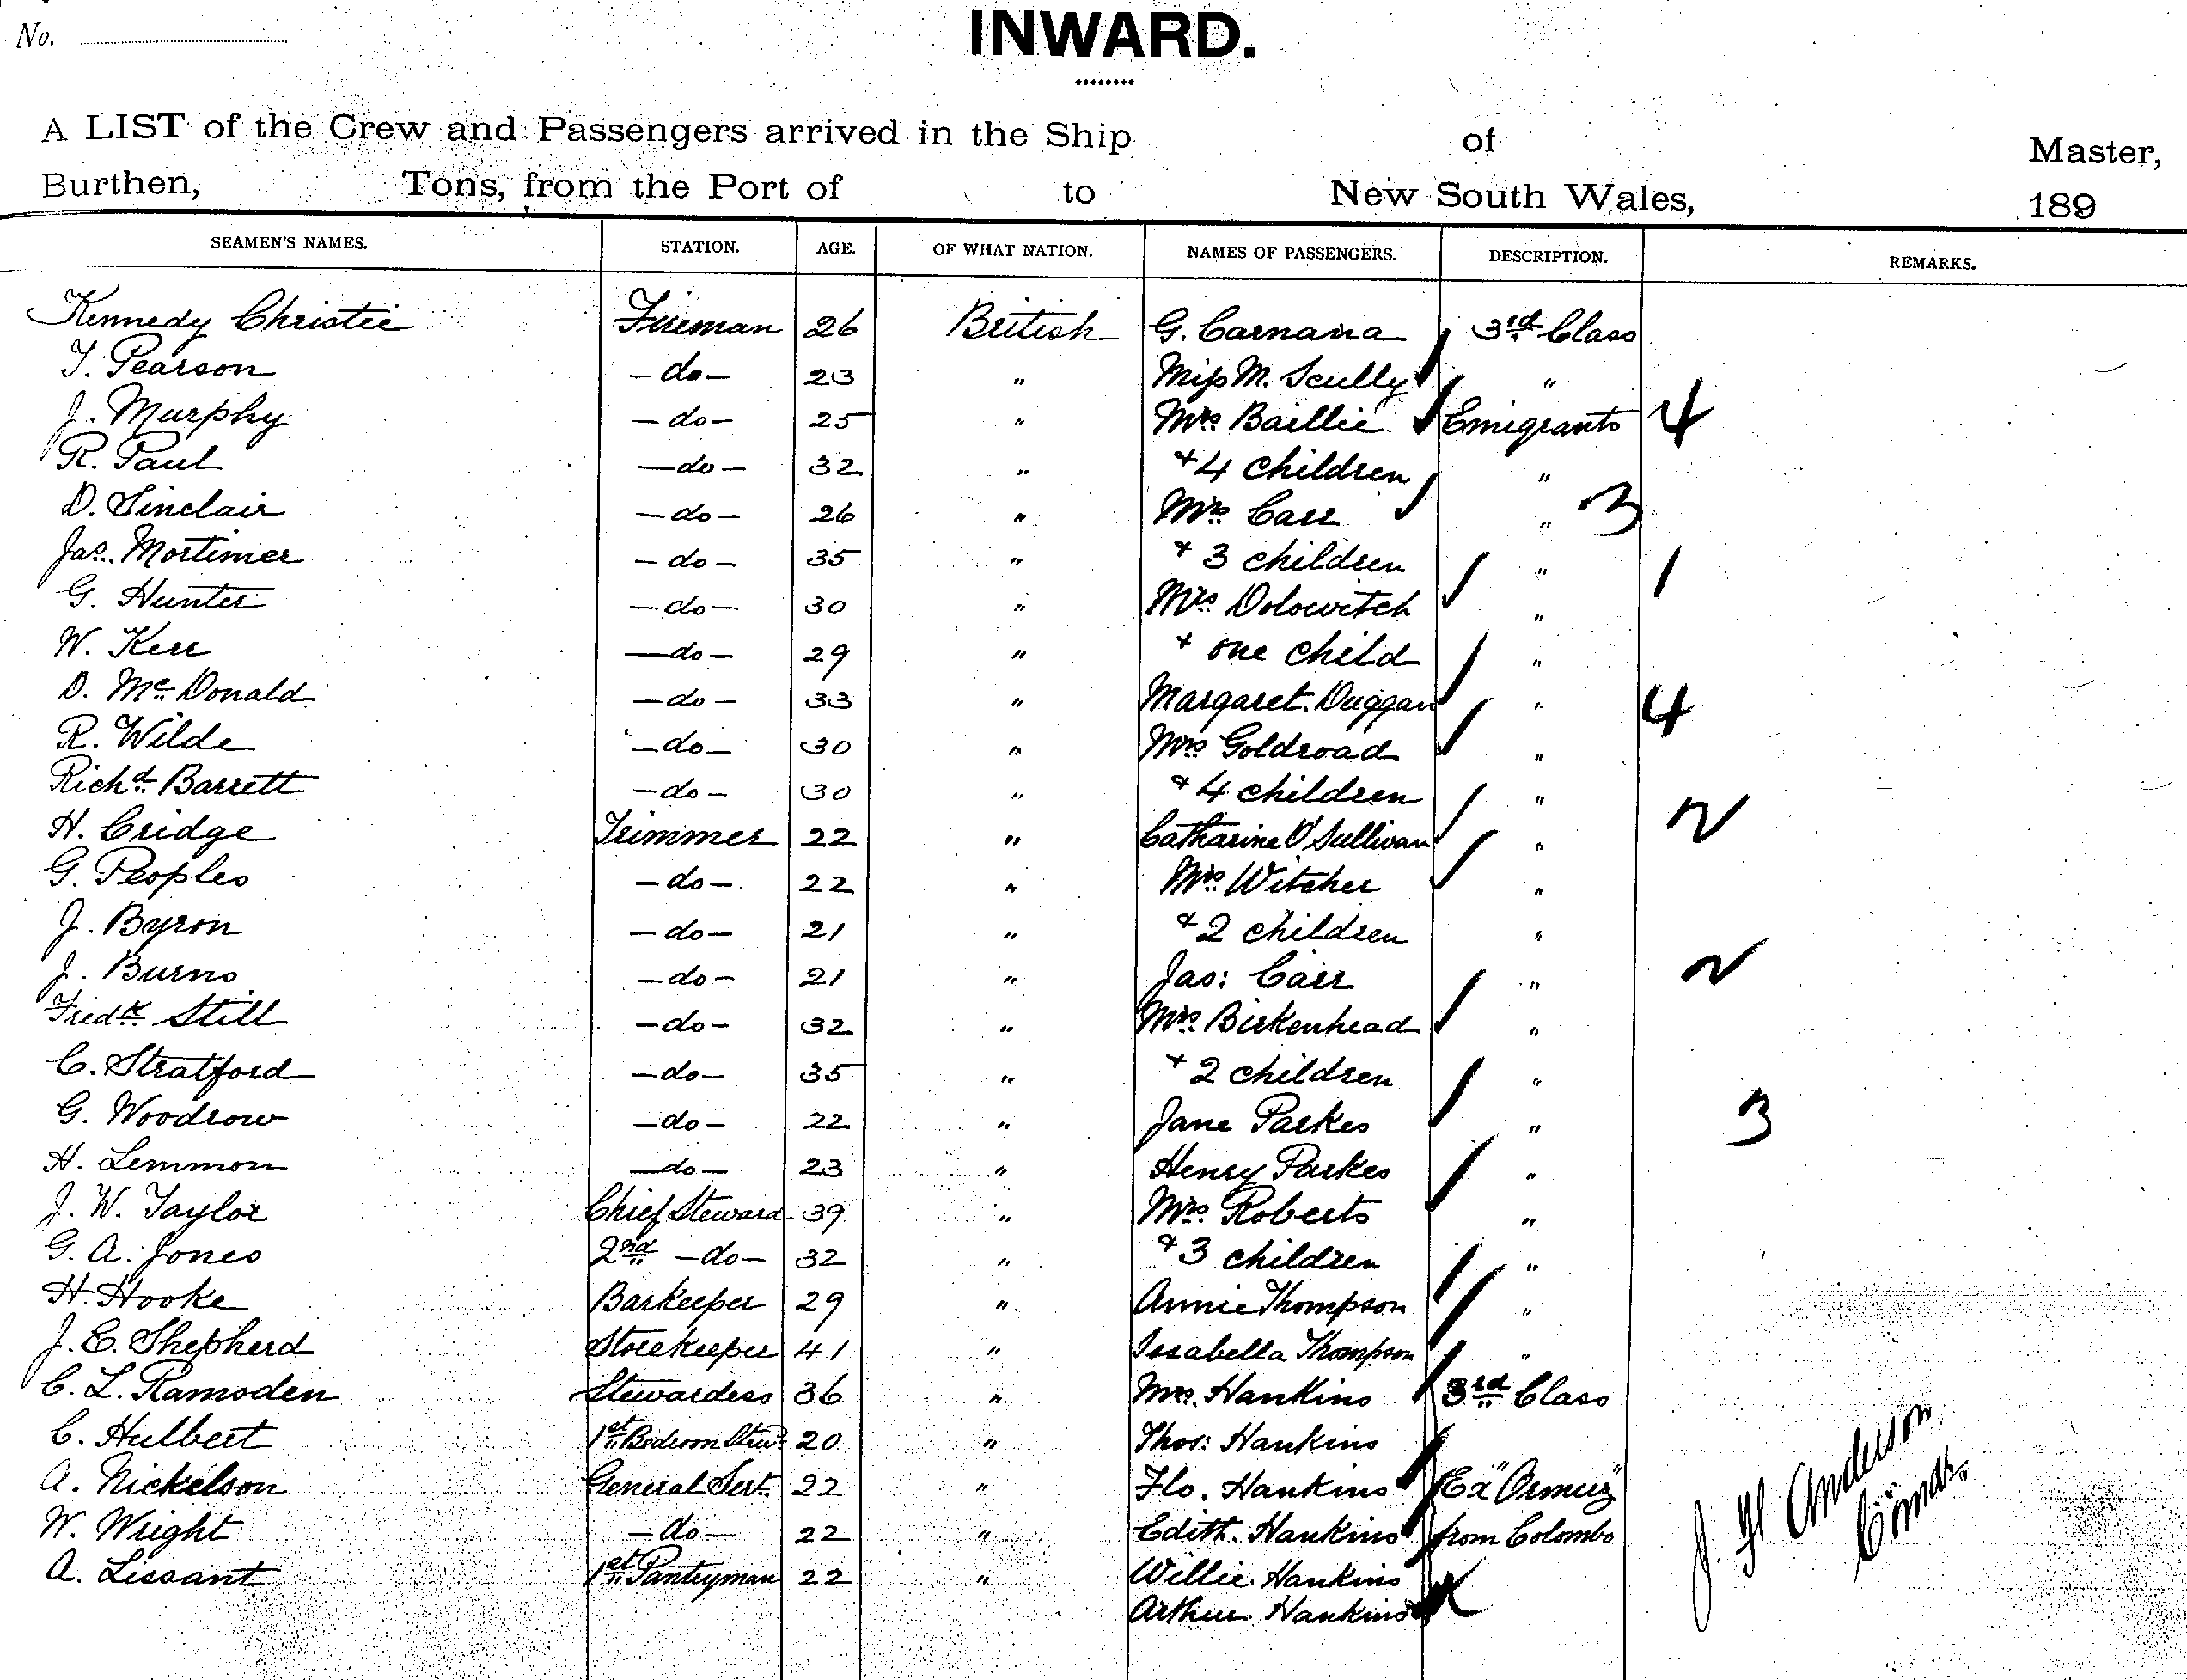 No.
INWARD.
A LIST of the Crew and Passengers arrived in the Ship of Master,
Burthen, Tons, from the Port of to New South Wales, 189
SEAMEN'S NAMES. STATION. AGE. OF WHAT NATION. NAMES OF PASSENGERS. DESCRIPTION. REMARKS.
Kennedy Christie Fireman 26 British G. Carnana 3rd Class
T. Pearson - do - 23 " Miss M. Scully "
J. Murphy - do - 25 " Mrs Baillie Emigrants 4
R. Paul - do - 32 " + 4 children "
D. Sinclair - do - 26 " Mrs Carr " 3
Jas. Mortimer - do - 35 " + 3 children "
G. Hunter - do - 30 " Mrs Dolowitch " 1
W. Kerr - do - 29 " + one child "
D. McDonald - do - 33 " Margaret Duggan " 4
R. Wilde - do - 30 " Mrs Goldroad "
Richd Barrett - do - 30 " + 4 children "
H. Cridge Trimmer 22 " Catharine O'Sullivan " 2
G. Peoples - do - 22 " Mrs Witcher "
J. Byron - do - 21 " + 2 children "
J. Burns - do - 21 " Jas: Carr " 2
Fredk Still - do - 32 " Mrs Birkenhead "
C. Stratford - do - 35 " + 2 children "
G. Woodrow - do - 22 " Jane Parkes " 3
H. Lemmon - do - 23 " Henry Parkes "
J. W. Taylor Chief Steward 39 " Mrs Roberts "
G. A. Jones 2nd - do - 32 " + 3 children "
H. Hooke Barkeeper 29 " Annie Thompson "
J. E. Shepherd Storekeeper 41 " Issabella Thompson "
C. L. Ramsden Stewardess 36 " Mrs. Hankins 3rd Class
C. Hulbert 1st Bedroom Stewd 20 " Thos: Hankins
A. Nickelson General Sert. 22 " Flo. Hankins Ex "Ormuz"
W. Wright - do - 22 " Edith. Hankins from Colombo
A. Lissant 1st Pantryman 22 " Willie Hankins
Arthur Hankins
J. H. Anderson
Comdr.